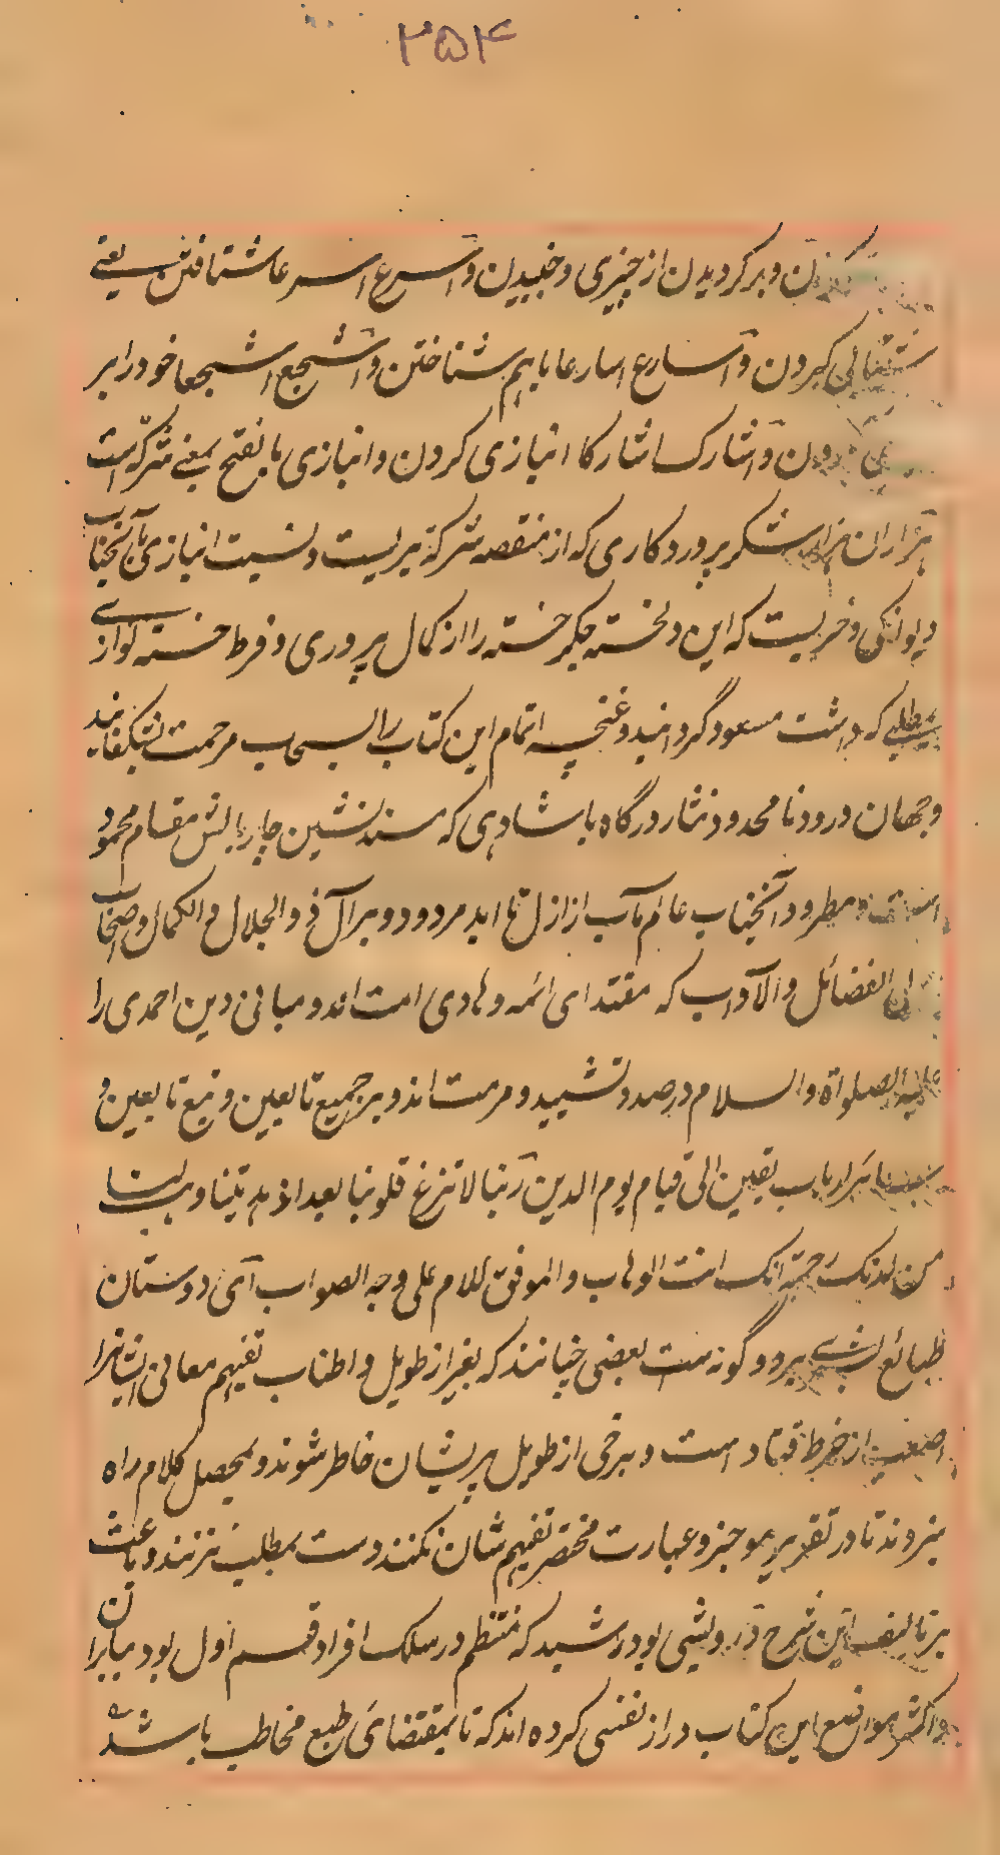 ۲۵۴
و برگردیدن از چیزی و خبیدن و اسرع اسرعا شتافتن یعنے
کردن و اسارع اسارعا باہم شتافتن و اشجع اشجعا خود را بر
و اشارک اشارکا انبازی کردن و انبازی بالفتح بمعنے شرکت است
ہزاران ہزار شکر پروردگاری کہ از منقصہ شرکت بریست و نسبت انبازی بآنجناب
دیوانگی و خریست کہ این دلخستہ جگر خستہ را از کمال پروری و فرط خستہ نوازے
بمطلبے کہ داشت مسعود گردانید و غنچہ اتمام این کتاب را بسحاب مرحمت بشگفانید
و جہان درود نامحدود نثار درگاہ بادشاہی کہ مسندنشین چار بالش مقام محمود
است و مطرود آنجناب عالم مآب از ازل تا ابد مردود و بر آل ذو الجلال و الکمال و اصحاب
الفضائل و الآداب کہ مقتدای ائمہ و ہادی امت اند و مبانی دین احمدی را
علیہ الصلواة و السلام در صدد تشیید و مرمت اند و بر جمیع تابعین و تبع تابعین و
ارباب یقین الی قیام یوم الدین ربنا لا تزغ قلوبنا بعد اذ ہدیتنا و ہب لنا
من لدنک رحمة انک انت الوہاب و الموفق للام علی وجہ الصواب ای دوستان
طبائع بشرے بر دو گونہ است بعضی چنانند کہ بغیر از طویل و اطناب تفہیم معانی ایشانرا
اصعب از خرط قتاد است و برخی از طویل پریشان خاطر شوند و بمحصل کلام راہ
نبرند و تا در تقریر موجز و عبارت مختصر تفہیم شان نکنند دست بمطلب نزنند و باعث
بر تالیف این شرح درویشی بود رشید کہ منتظم در سلک افراد قسم اول بود بنابران
در اکثر مواقع این کتاب دراز نفسی کردہ اند کہ تا بمقتضای طبع مخاطب باشد